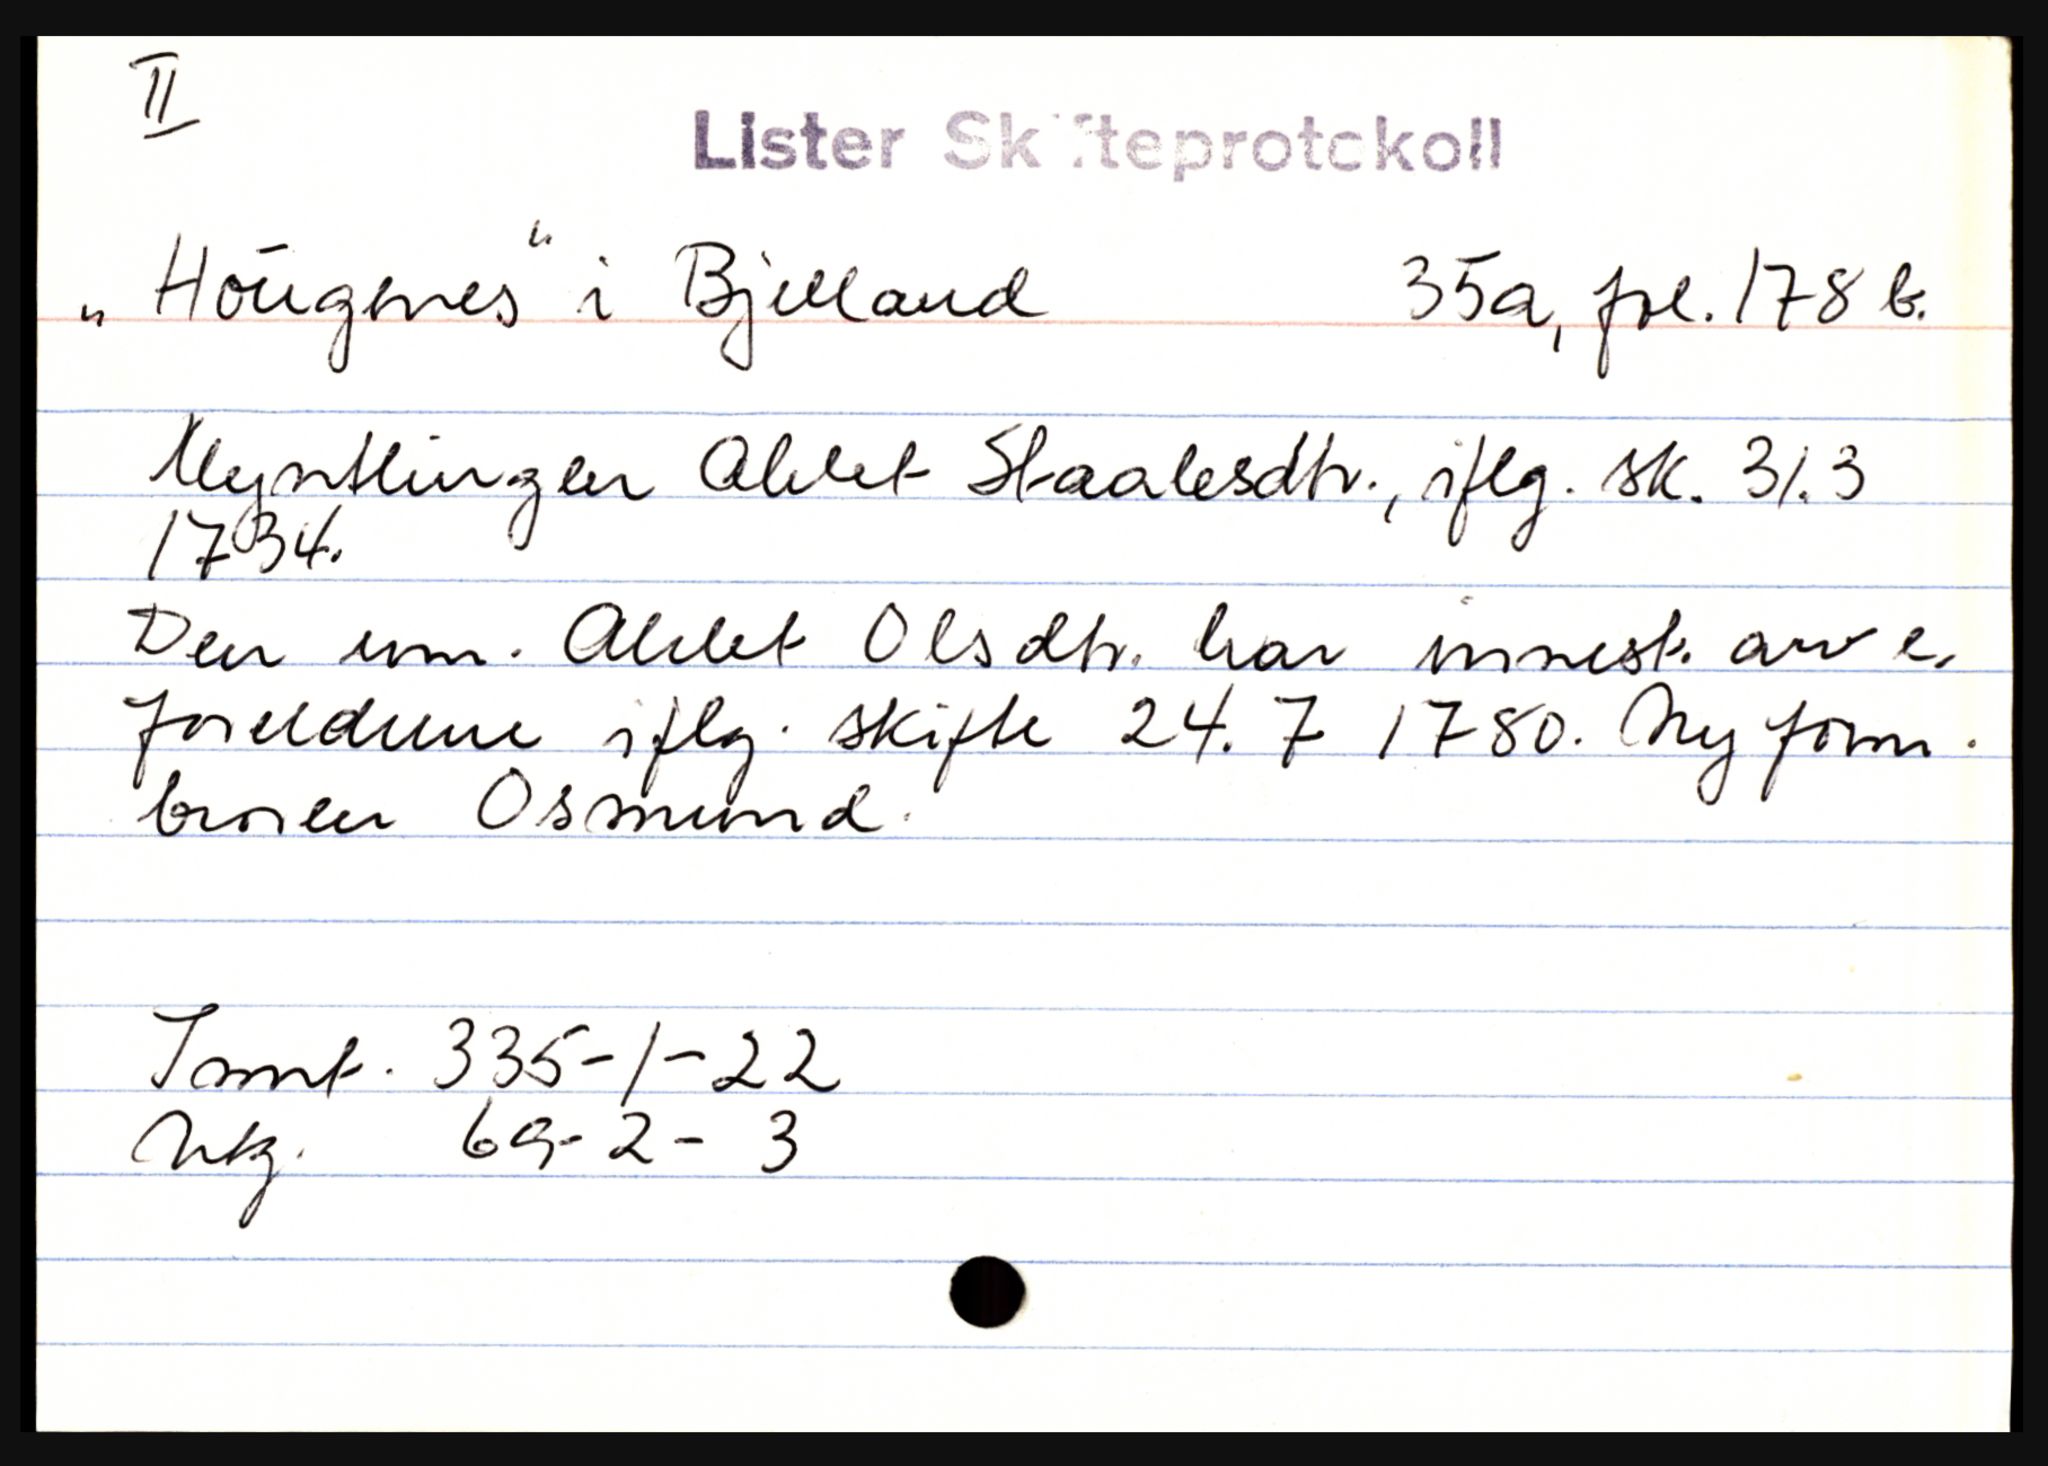 II
Lister Skifteprotokoll
„Hoŭgenes“ i Bjelland 35a, fol. 178 b.
Myntlingen Ahlet Staalesdtr., iflg. sk. 31.3
1734.
Den um. Ahlet Olsdtr. har innest. arv e.
foreldrene iflg. skifte 24. 7 1780. Ny form.
broren Osmund.
Tomt. 335-1-22
Utg. 69-2-3